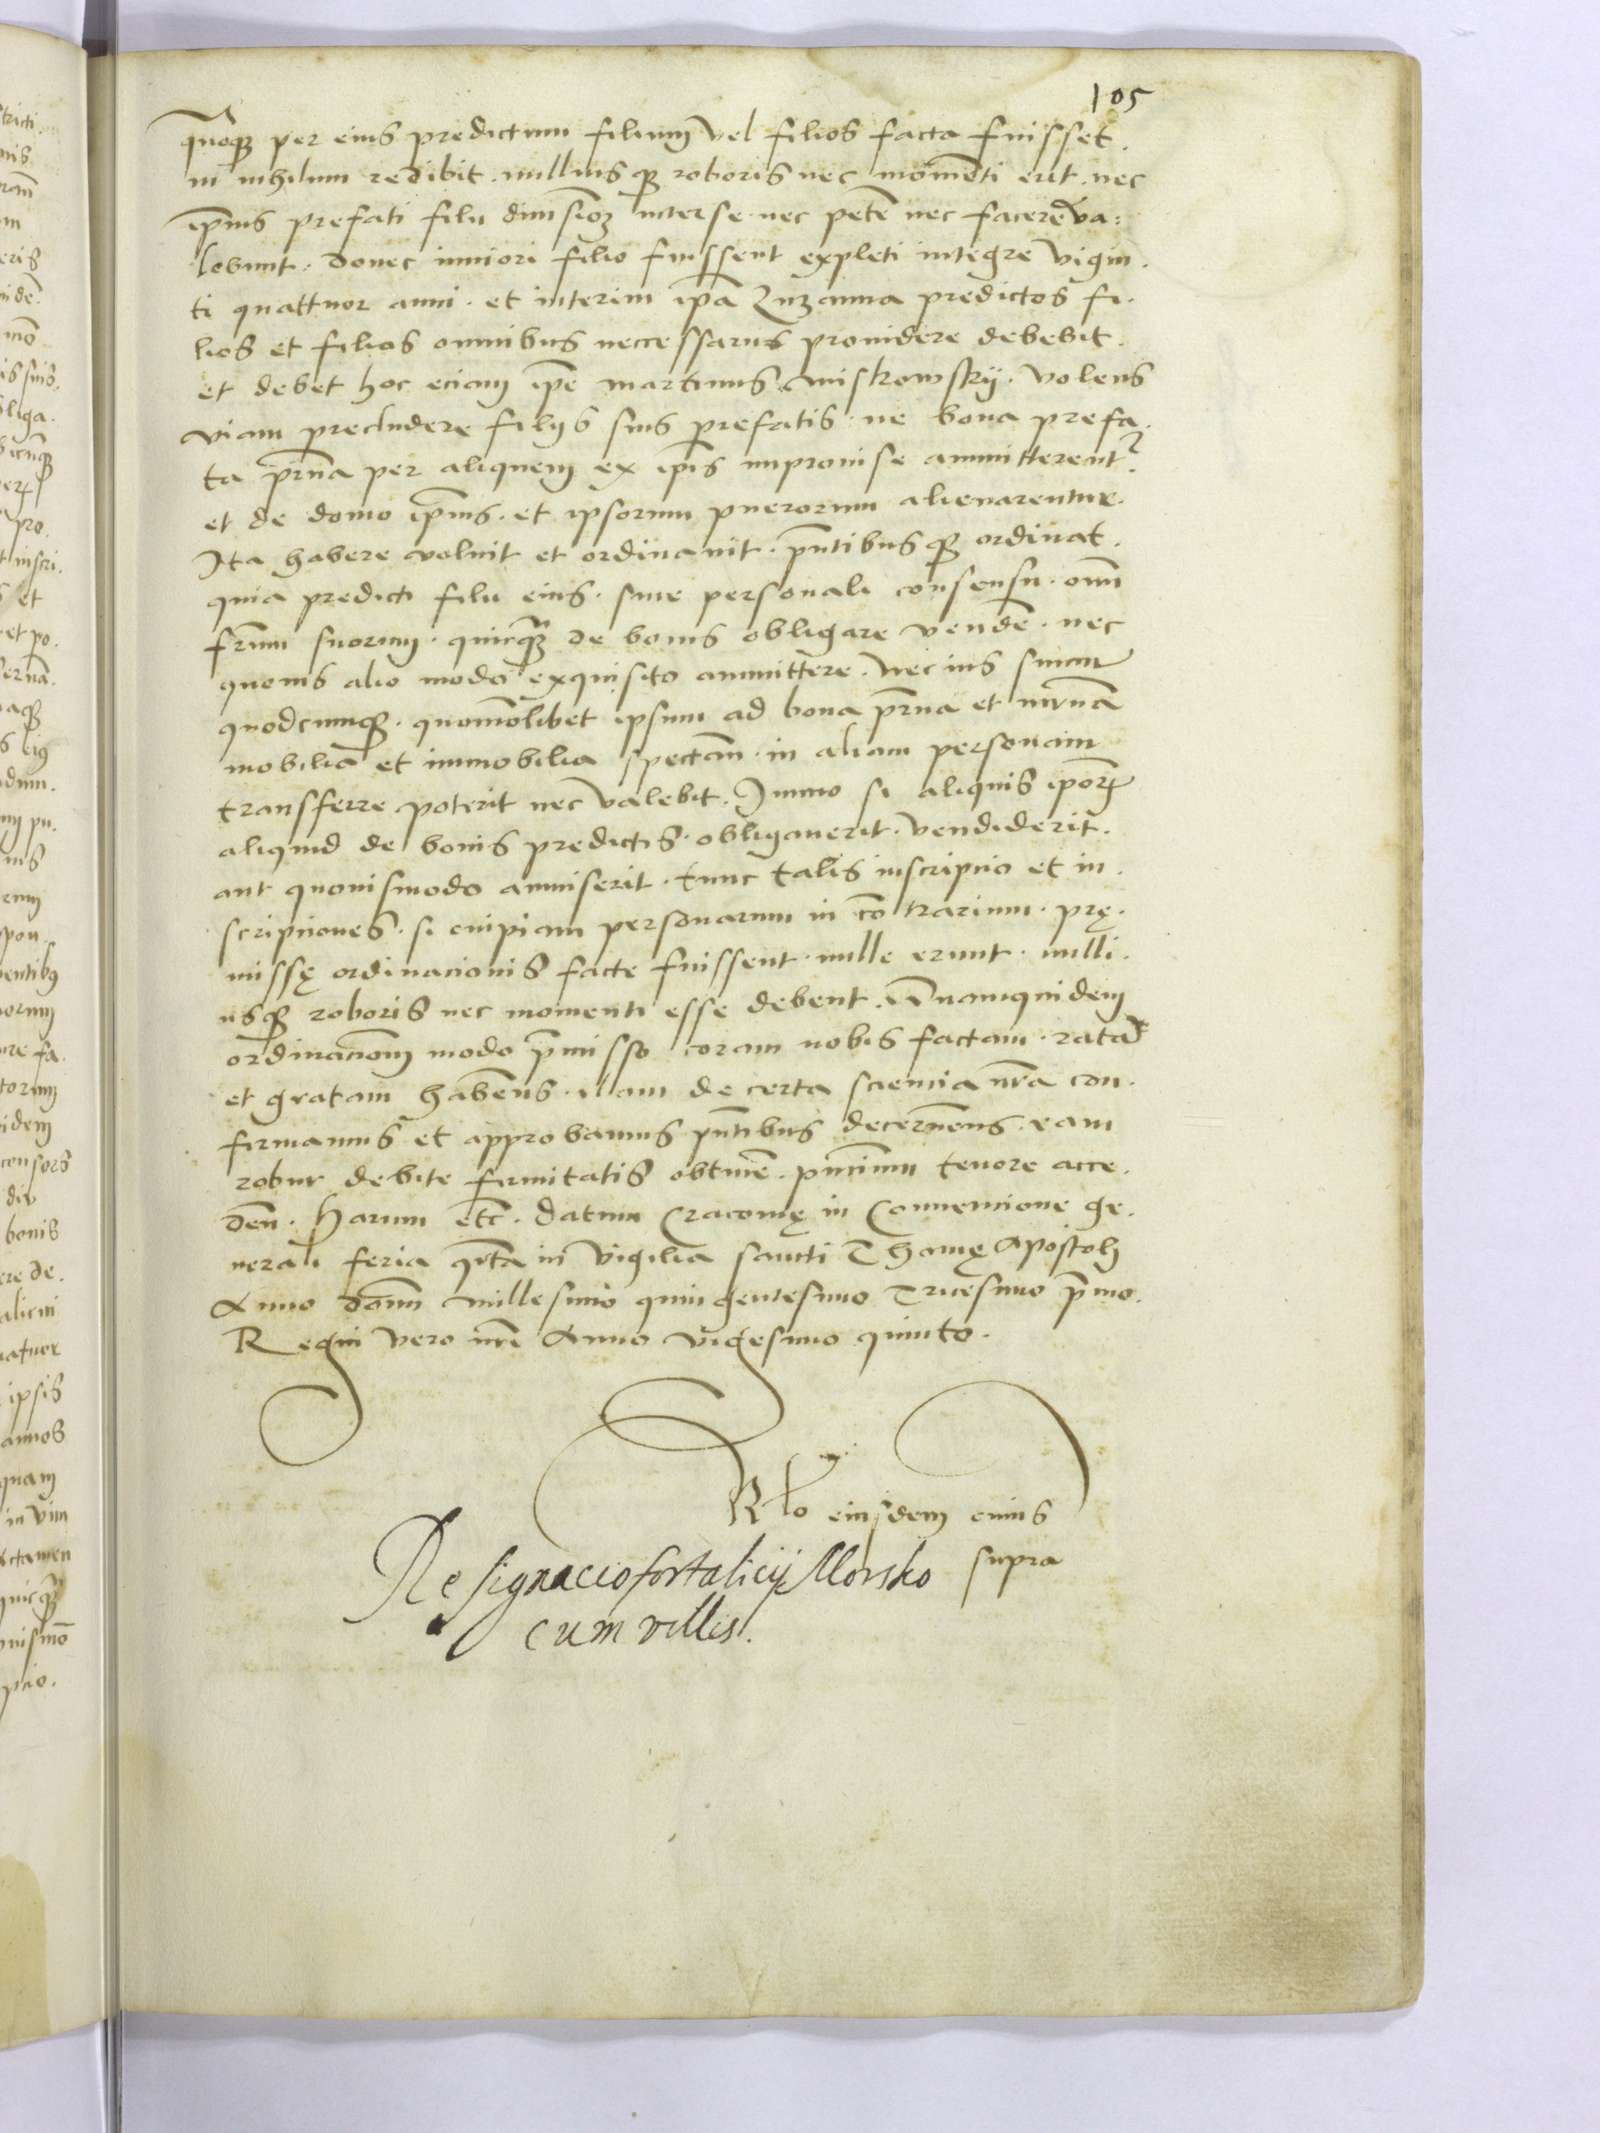 105
quoq per eius predictum filium vel filios facta fuisset.
in nihilum redibit. nullius q roboris nec momenti erit. nec
ipius prefati filii diuisioẽ inter se. nec petẽ nec facere va:
lebunt. donec iuniori filio fuissent expleti integre vigin.
ti quattuor anni. et interim ipã Zuzanna predictos fi.
lios et filias omnibus neccessariis prouidere debebit.
et debet hoc eciam ipẽ martinus Miskowskij. volens
viam precludere filijs suis prefatis. ne bona prefa.
ta prña per aliquem ex ipis improuise ammitterent
et de domo ipius. et ipsorum puerorum alienarentur.
Ita habere voluit et ordinauit. pñtibus q ordinat.
quia predicti filii eius. sine personali consensu. omĩ
frum suorum. quicq de bonis obligare vendẽ. nec
quouis alio modo exquisito ammittere. nec ius suum
quodcunq. quomolibet ipsum ad bona prña et mrña
mobilia et immobilia spectañ. in aliam personam
transferre poterit nec valebit. Immo si aliquis ipor
aliquid de bonis predictis. obligauerit. vendiderit.
aut quouismodo ammiserit. tunc talis inscripcio et in.
scripciones. si cuipiam personarum in cõtrarium. prę.
missę ordinacionis facte fuissent. nulle erunt. nulli.
usq roboris nec momenti esse debent. Quamquidem
ordinacionem modo pmisso coram nobis factam. ratam
et gratam habẽns. illam de certa sciencia nra con.
firmamus et approbamus pñtibus decernẽns. eam
robur debite firmitatis obtinẽ. pñcium tenore acce.
deñ. Harum etc. datum Cracouię in Conuencione ge.
nerali feria qrta in vigilia sancti Thomę Apostoli
Anno domĩ millesimo quingentesimo Tricesimo pmo.
Regni vero nrĩ Anno vigesimo quinto.
Rlo eiusdem cuius
supra
Resignacio fortalicij Morsko
cum villis.